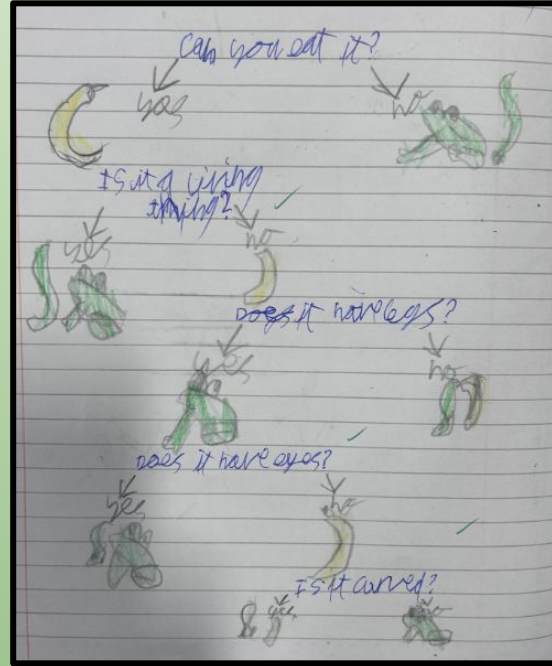 Can you eat it?
yes no
Is it a living
thing?
yes no
Does it have legs?
yes no
Does it have eyes?
yes no
Is it curved?
yes no